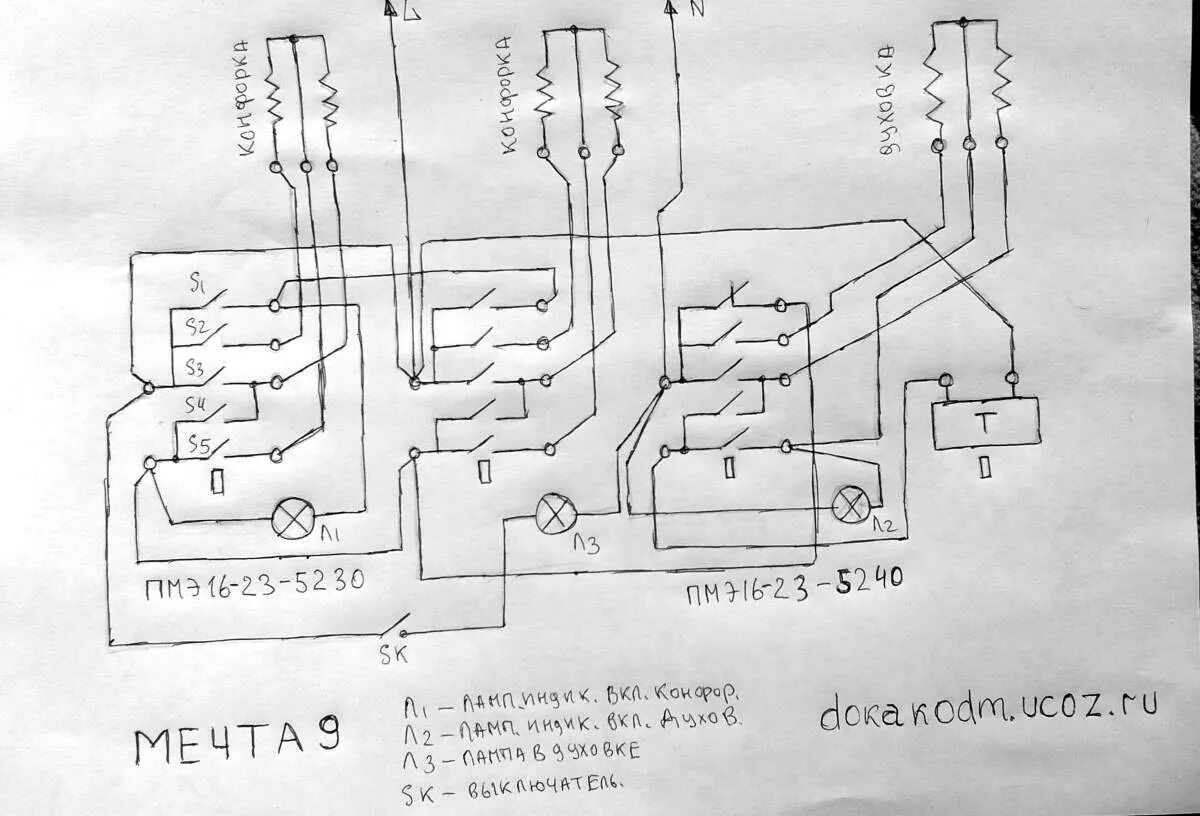 L
N
КОНФОРКА
КОНФОРКА
ДУХОВКА
S1
S2
S3
S4
S5
Т
Л1
Л3
Л2
ПМЭ16-23-5230
ПМЭ16-23-5240
SK
МЕЧТА 9
Л1 – ЛАМП. ИНДИК. ВКЛ. КОНФОР.
Л2 – ЛАМП. ИНДИК. ВКЛ. ДУХОВ.
Л3 – ЛАМПА В ДУХОВКЕ
SK – ВЫКЛЮЧАТЕЛЬ.
dokakodm.ucoz.ru